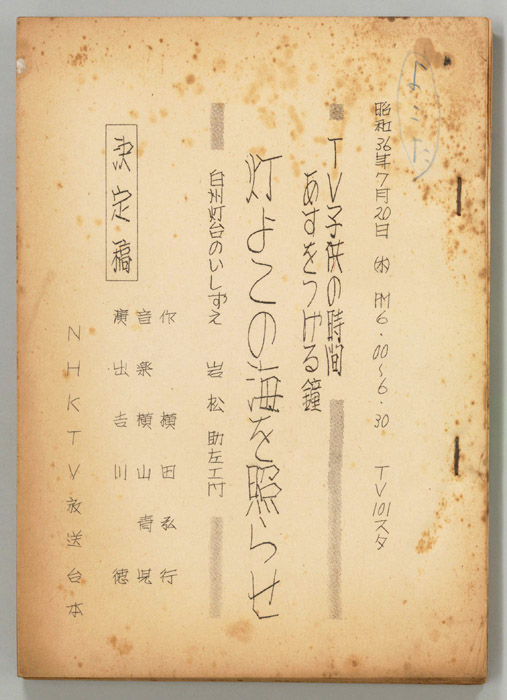 よこたん
昭和36年7月20日 (木) PM6・00〜6・30 TV101スタ
TV子供の時間
あすをつげる鐘
灯よこの海を照らせ
白州灯台のいしずえ 岩松助左エ門
決定稿
作 横田弘行
音楽 横山菁児
演出 吉川 徳
NHKTV放送台本